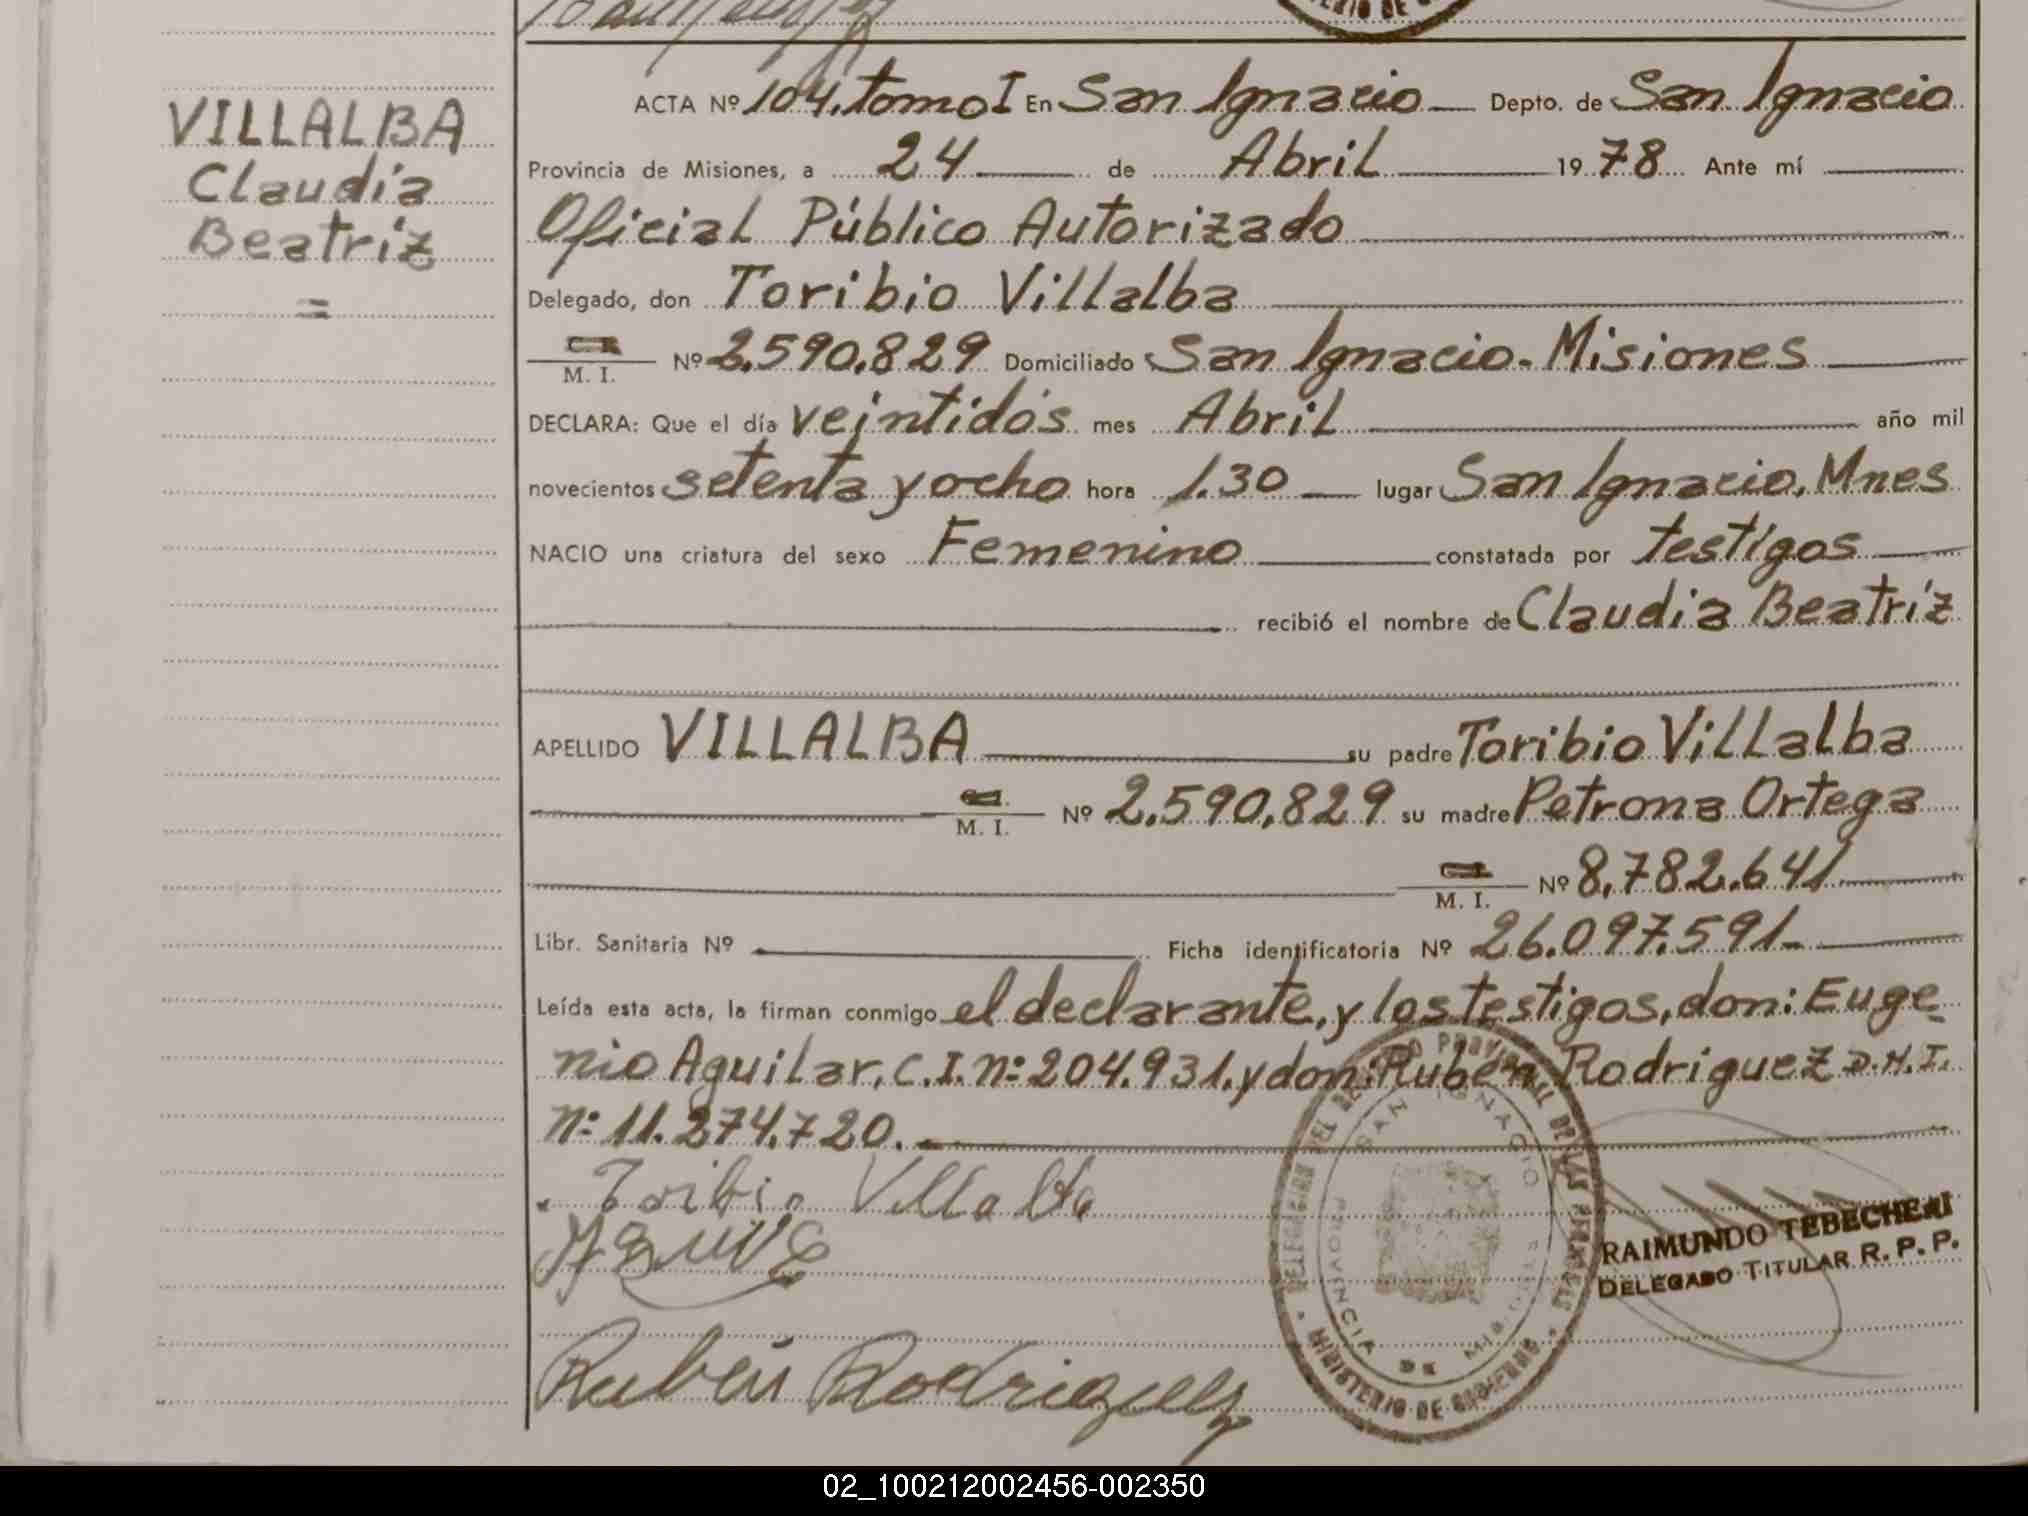 VILLALBA
Claudia
Beatríz
=
ACTA Nº 104, tomo I En San Ignacio Depto. de San Ignacio
Provincia de Misiones, a 24 de Abril 1978 Ante mí
Oficial Público Autorizado
Delegado, don Toribio Villalba
M. I. Nº 2,590,829 Domiciliado San Ignacio-Misiones
DECLARA: Que el día veintidós mes Abril año mil
novecientos setenta y ocho hora 1.30 lugar San Ignacio, Mnes
NACIO una criatura del sexo Femenino constatada por testigos
recibió el nombre de Claudia Beatríz
APELLIDO VILLALBA su padre Toribio Villalba
M. I. Nº 2,590,829 su madre Petrona Ortega
M. I. Nº 8,782.641
Libr. Sanitaria Nº Ficha identificatoria Nº 26.097.591
Leída esta acta, la firman conmigo el declarante, y los testigos, don: Euge
nio Aguilar, C.I. n: 204.931, y don: Rubén Rodriguez D.M.I.
n: 11.274.720.
Toribio Villalba
Rubén Rodriguez
DELEGACION DEL REGISTRO PROVINCIAL DE LAS PERSONAS
SAN IGNACIO
PROVINCIA DE MISIONES
MINISTERIO DE GOBIERNO
RAIMUNDO TEBECHERI
DELEGADO TITULAR R. P. P.
02_100212002456-002350